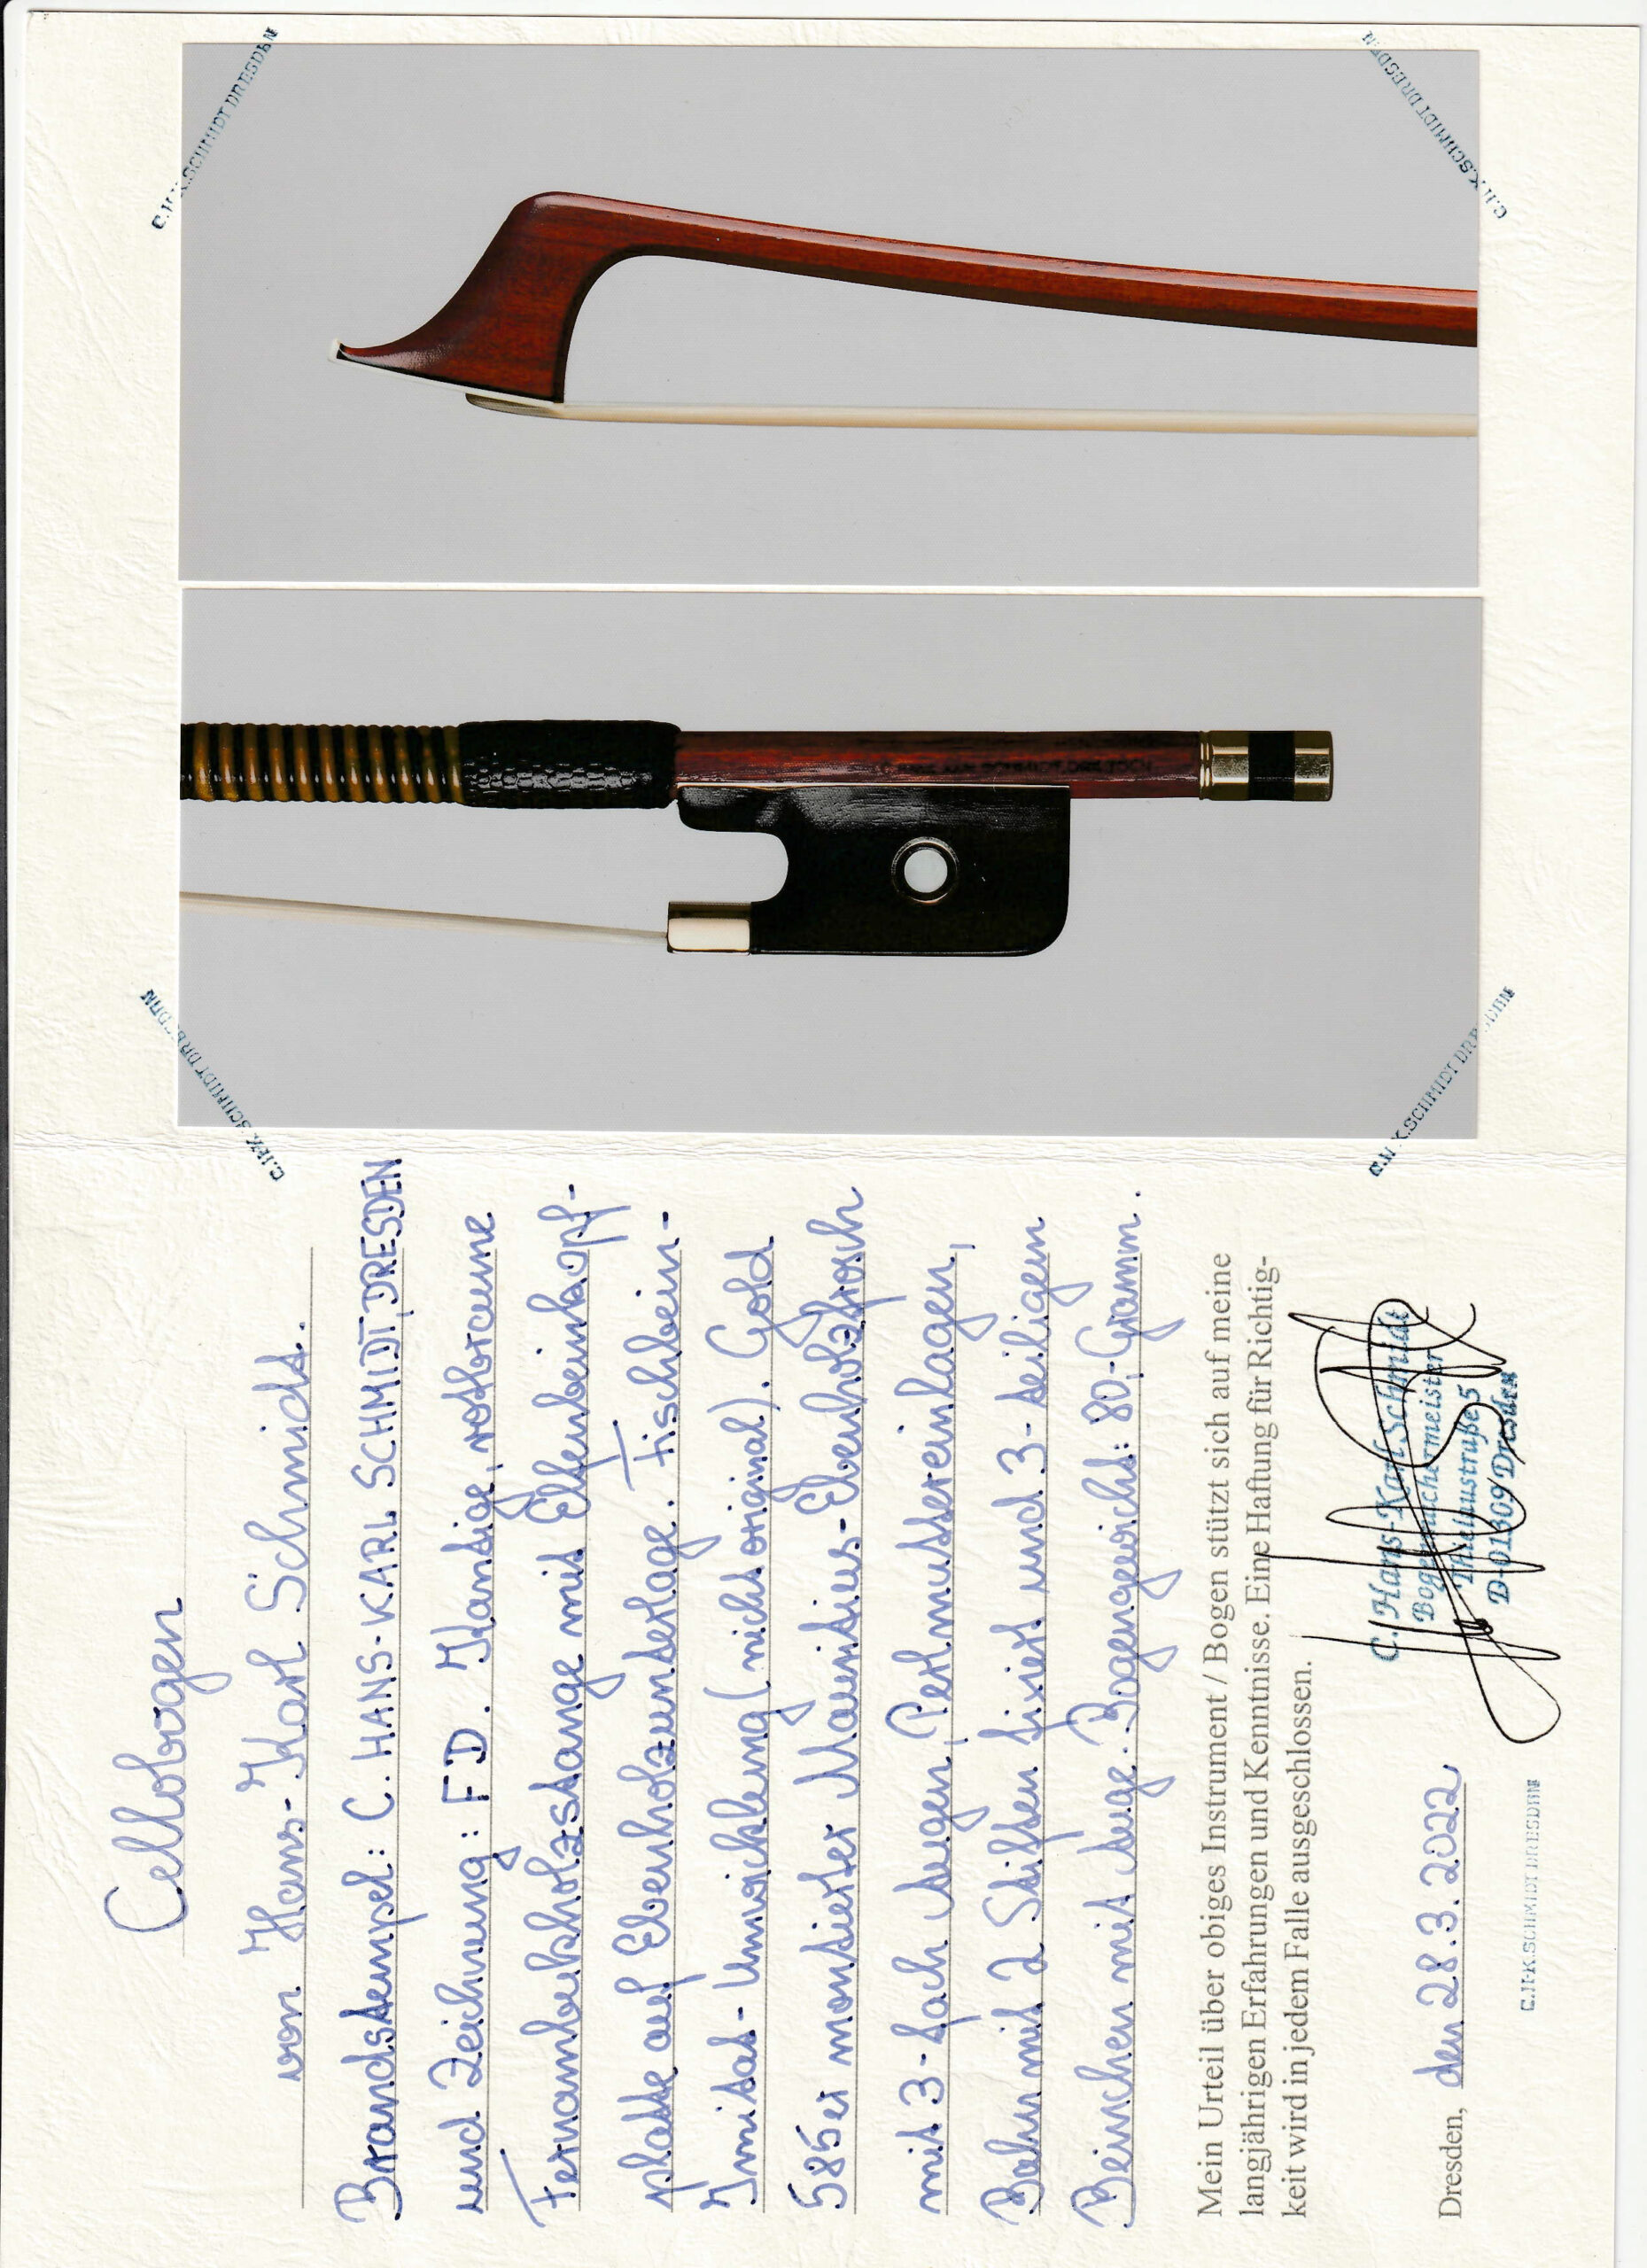 C.H-K.SCHMIDT DRESDEN
C.H-K.SCHMIDT DRESDEN
SCHMIDT, DRESDEN
C.H-K.SCHMIDT DRESDEN
C.H-K.SCHMIDT DRESDEN
Cellobogen
von Hans-Karl Schmidt.
Brandstempel: C. HANS-KARL SCHMIDT, DRESDEN
und Zeichnung: FD. Kantige, rotbraune
Fernambukholzstange mit Elfenbeinkopf-
platte auf Ebenholzunterlage. Fischbein-
Imitat-Umwicklung (nicht original). Gold
585er montierter Mauritius-Ebenholzfrosch
mit 3-fach Augen, Perlmuttereinlagen,
Bahn mit 2 Stiften fixiert und 3-teiligen
Beinchen mit Auge. Bogengewicht: 80,-Gramm.
Mein Urteil über obiges Instrument / Bogen stützt sich auf meine
langjährigen Erfahrungen und Kenntnisse. Eine Haftung für Richtig-
keit wird in jedem Falle ausgeschlossen.
C. Hans-Karl Schmidt
Bogenmachermeister
Thielaustraße 5
D-01309 Dresden
Dresden, den 28.3.2022
C.H-K.SCHMIDT DRESDEN